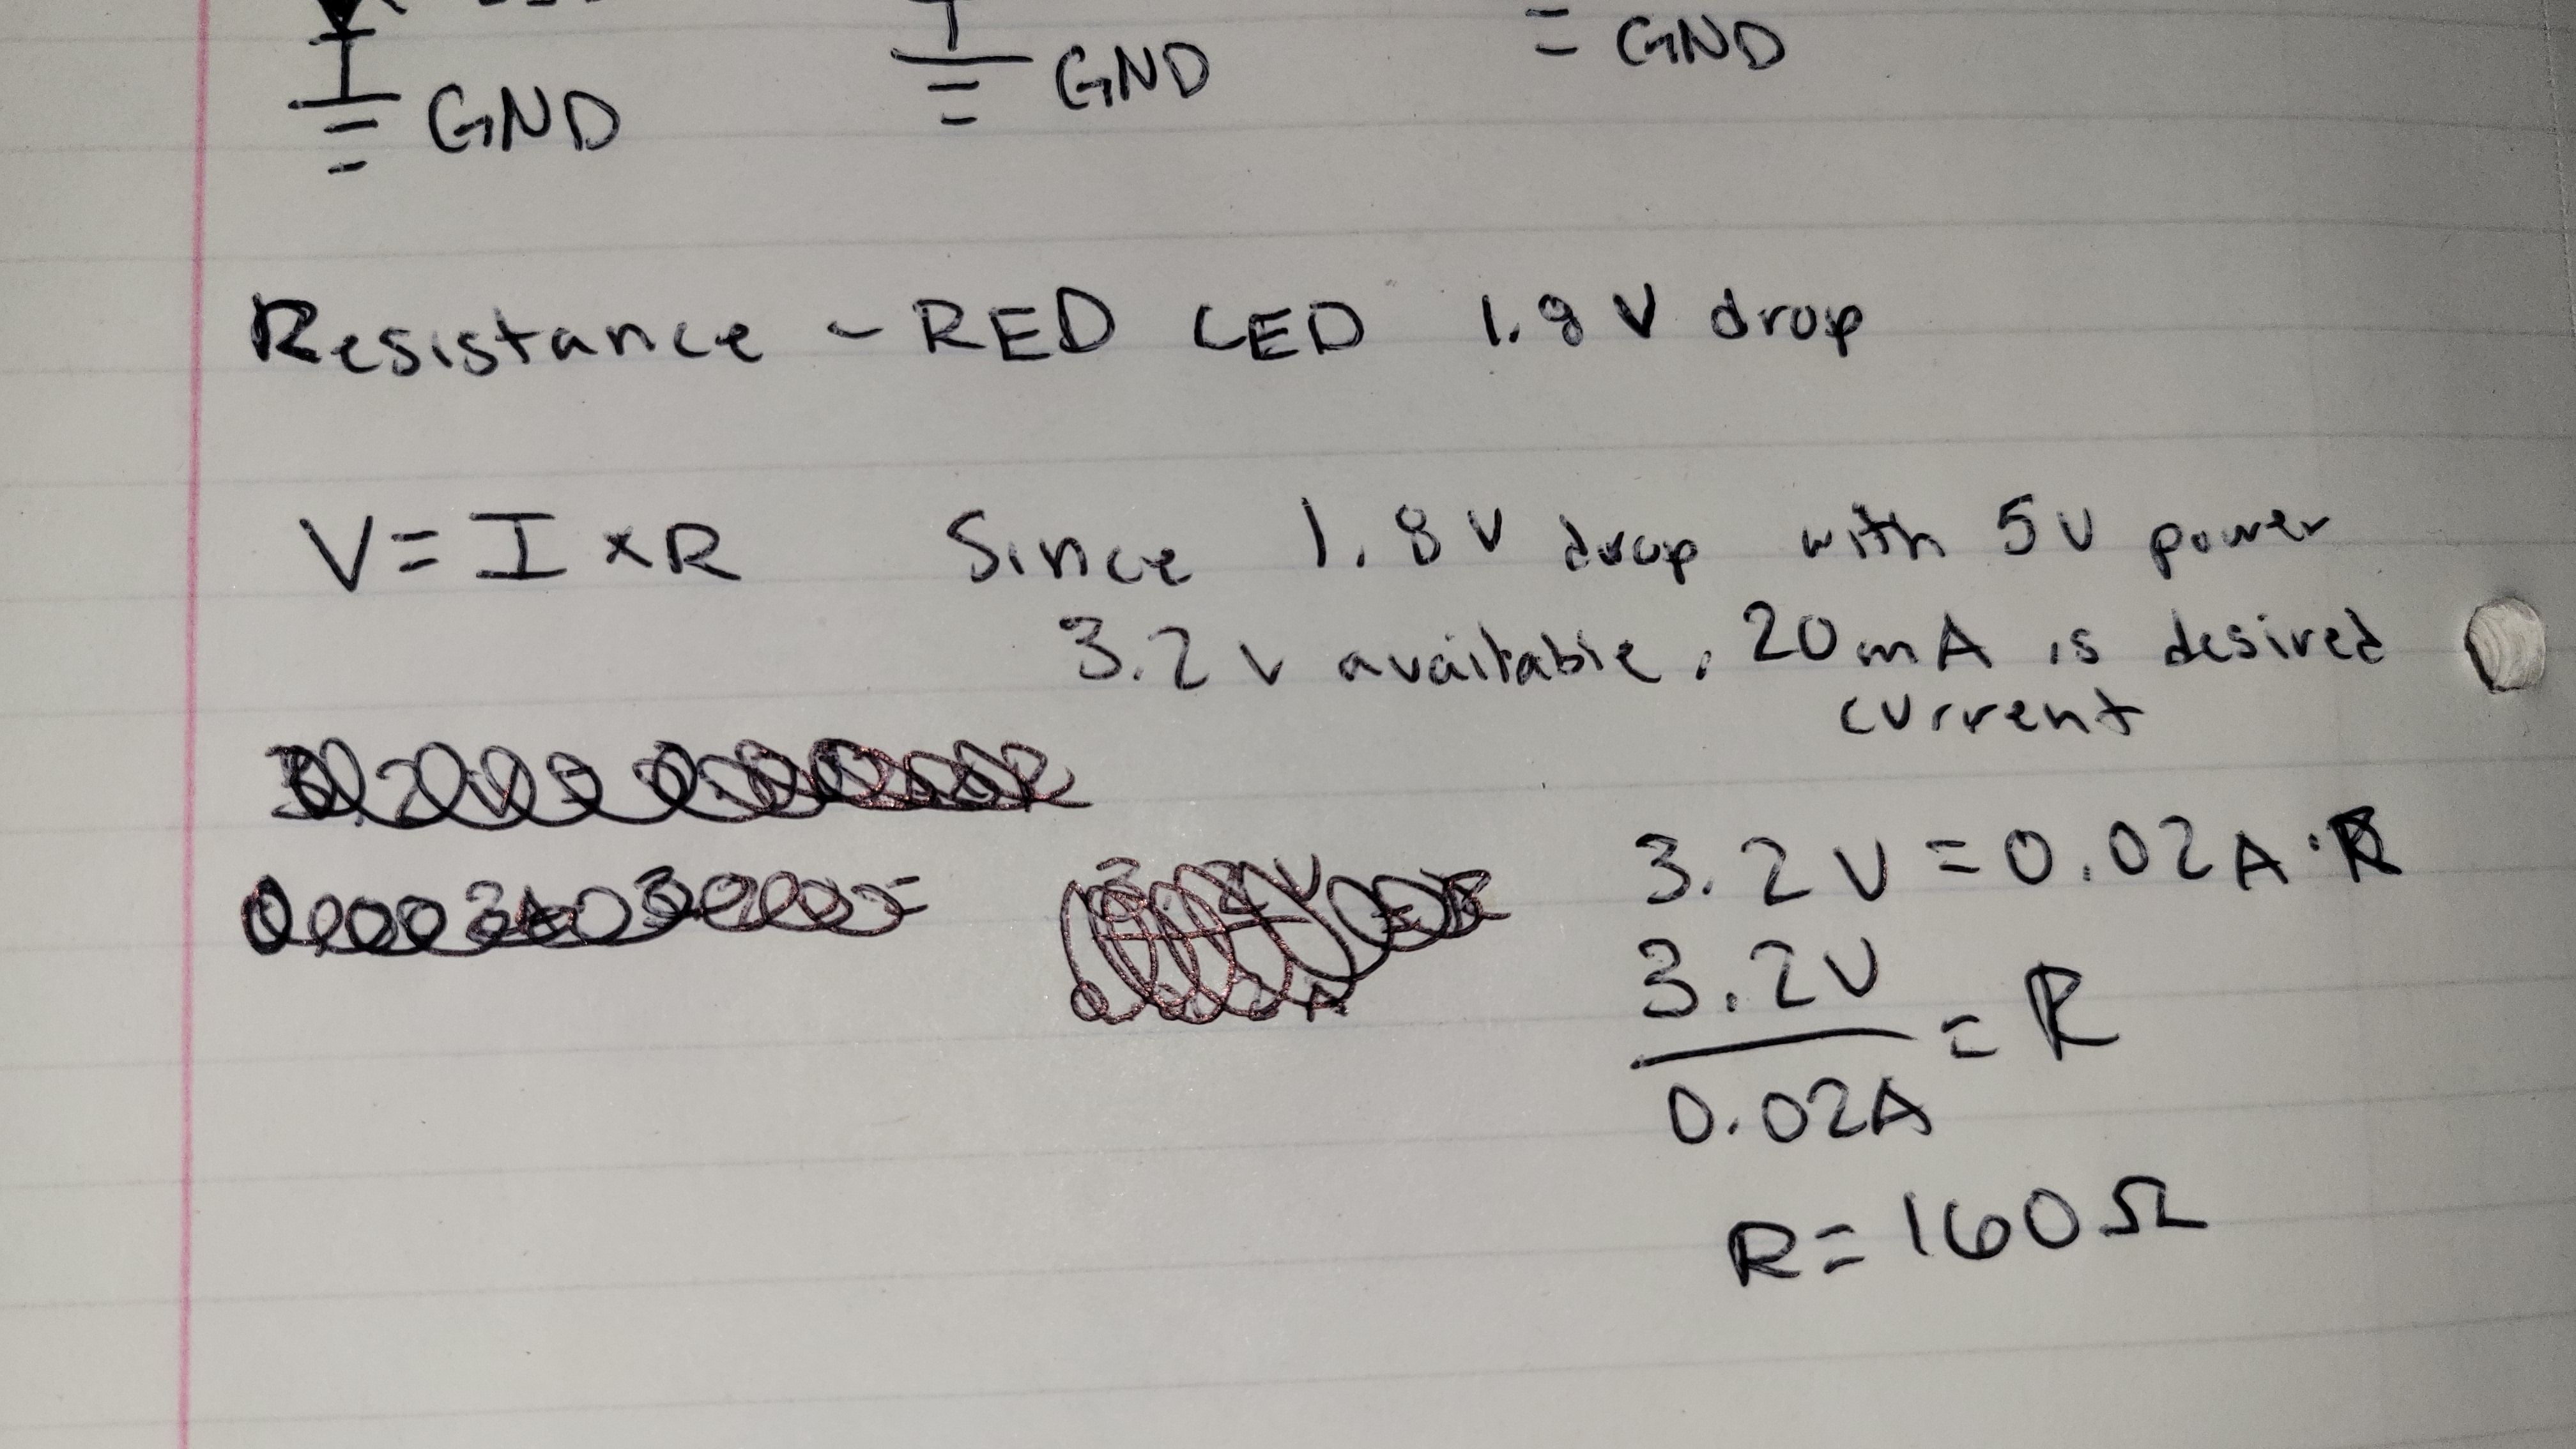 GND
GND
= GND
Resistance - RED LED 1.8 V drop
V = I × R
Since 1.8V drop with 5V power
3.2 V available, 20mA is desired
current
3.2V = 0.02A · R
3.2V
= R
0.02A
R = 160 Ω